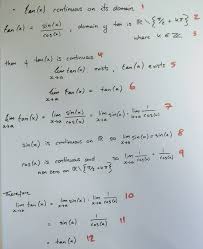 • tan(x) continuous on its domain 1
tan(x) = sin(x)/cos(x), domain of tan is ℝ \ {π/2 + kπ} 2
where k ∈ ℤ 3
then if tan(x) is continuous 4
lim x→a tan(x) exists, tan(a) exists 5
lim x→a tan(x) = tan(a) 6
lim x→a tan(x) = lim x→a sin(x)/cos(x) = lim x→a sin(x) · lim x→a 1/cos(x) 7
sin(x) is continuous on ℝ so lim x→a sin(x) = sin(a) 8
cos(x) is continuous and non zero on ℝ\{π/2 + kπ} so lim x→a 1/cos(x) = 1/cos(a) 9
Therefore
lim x→a tan(x) = lim x→a sin(x) · lim x→a 1/cos(x) 10
= sin(a) · 1/cos(a) 11
= tan(a) 12